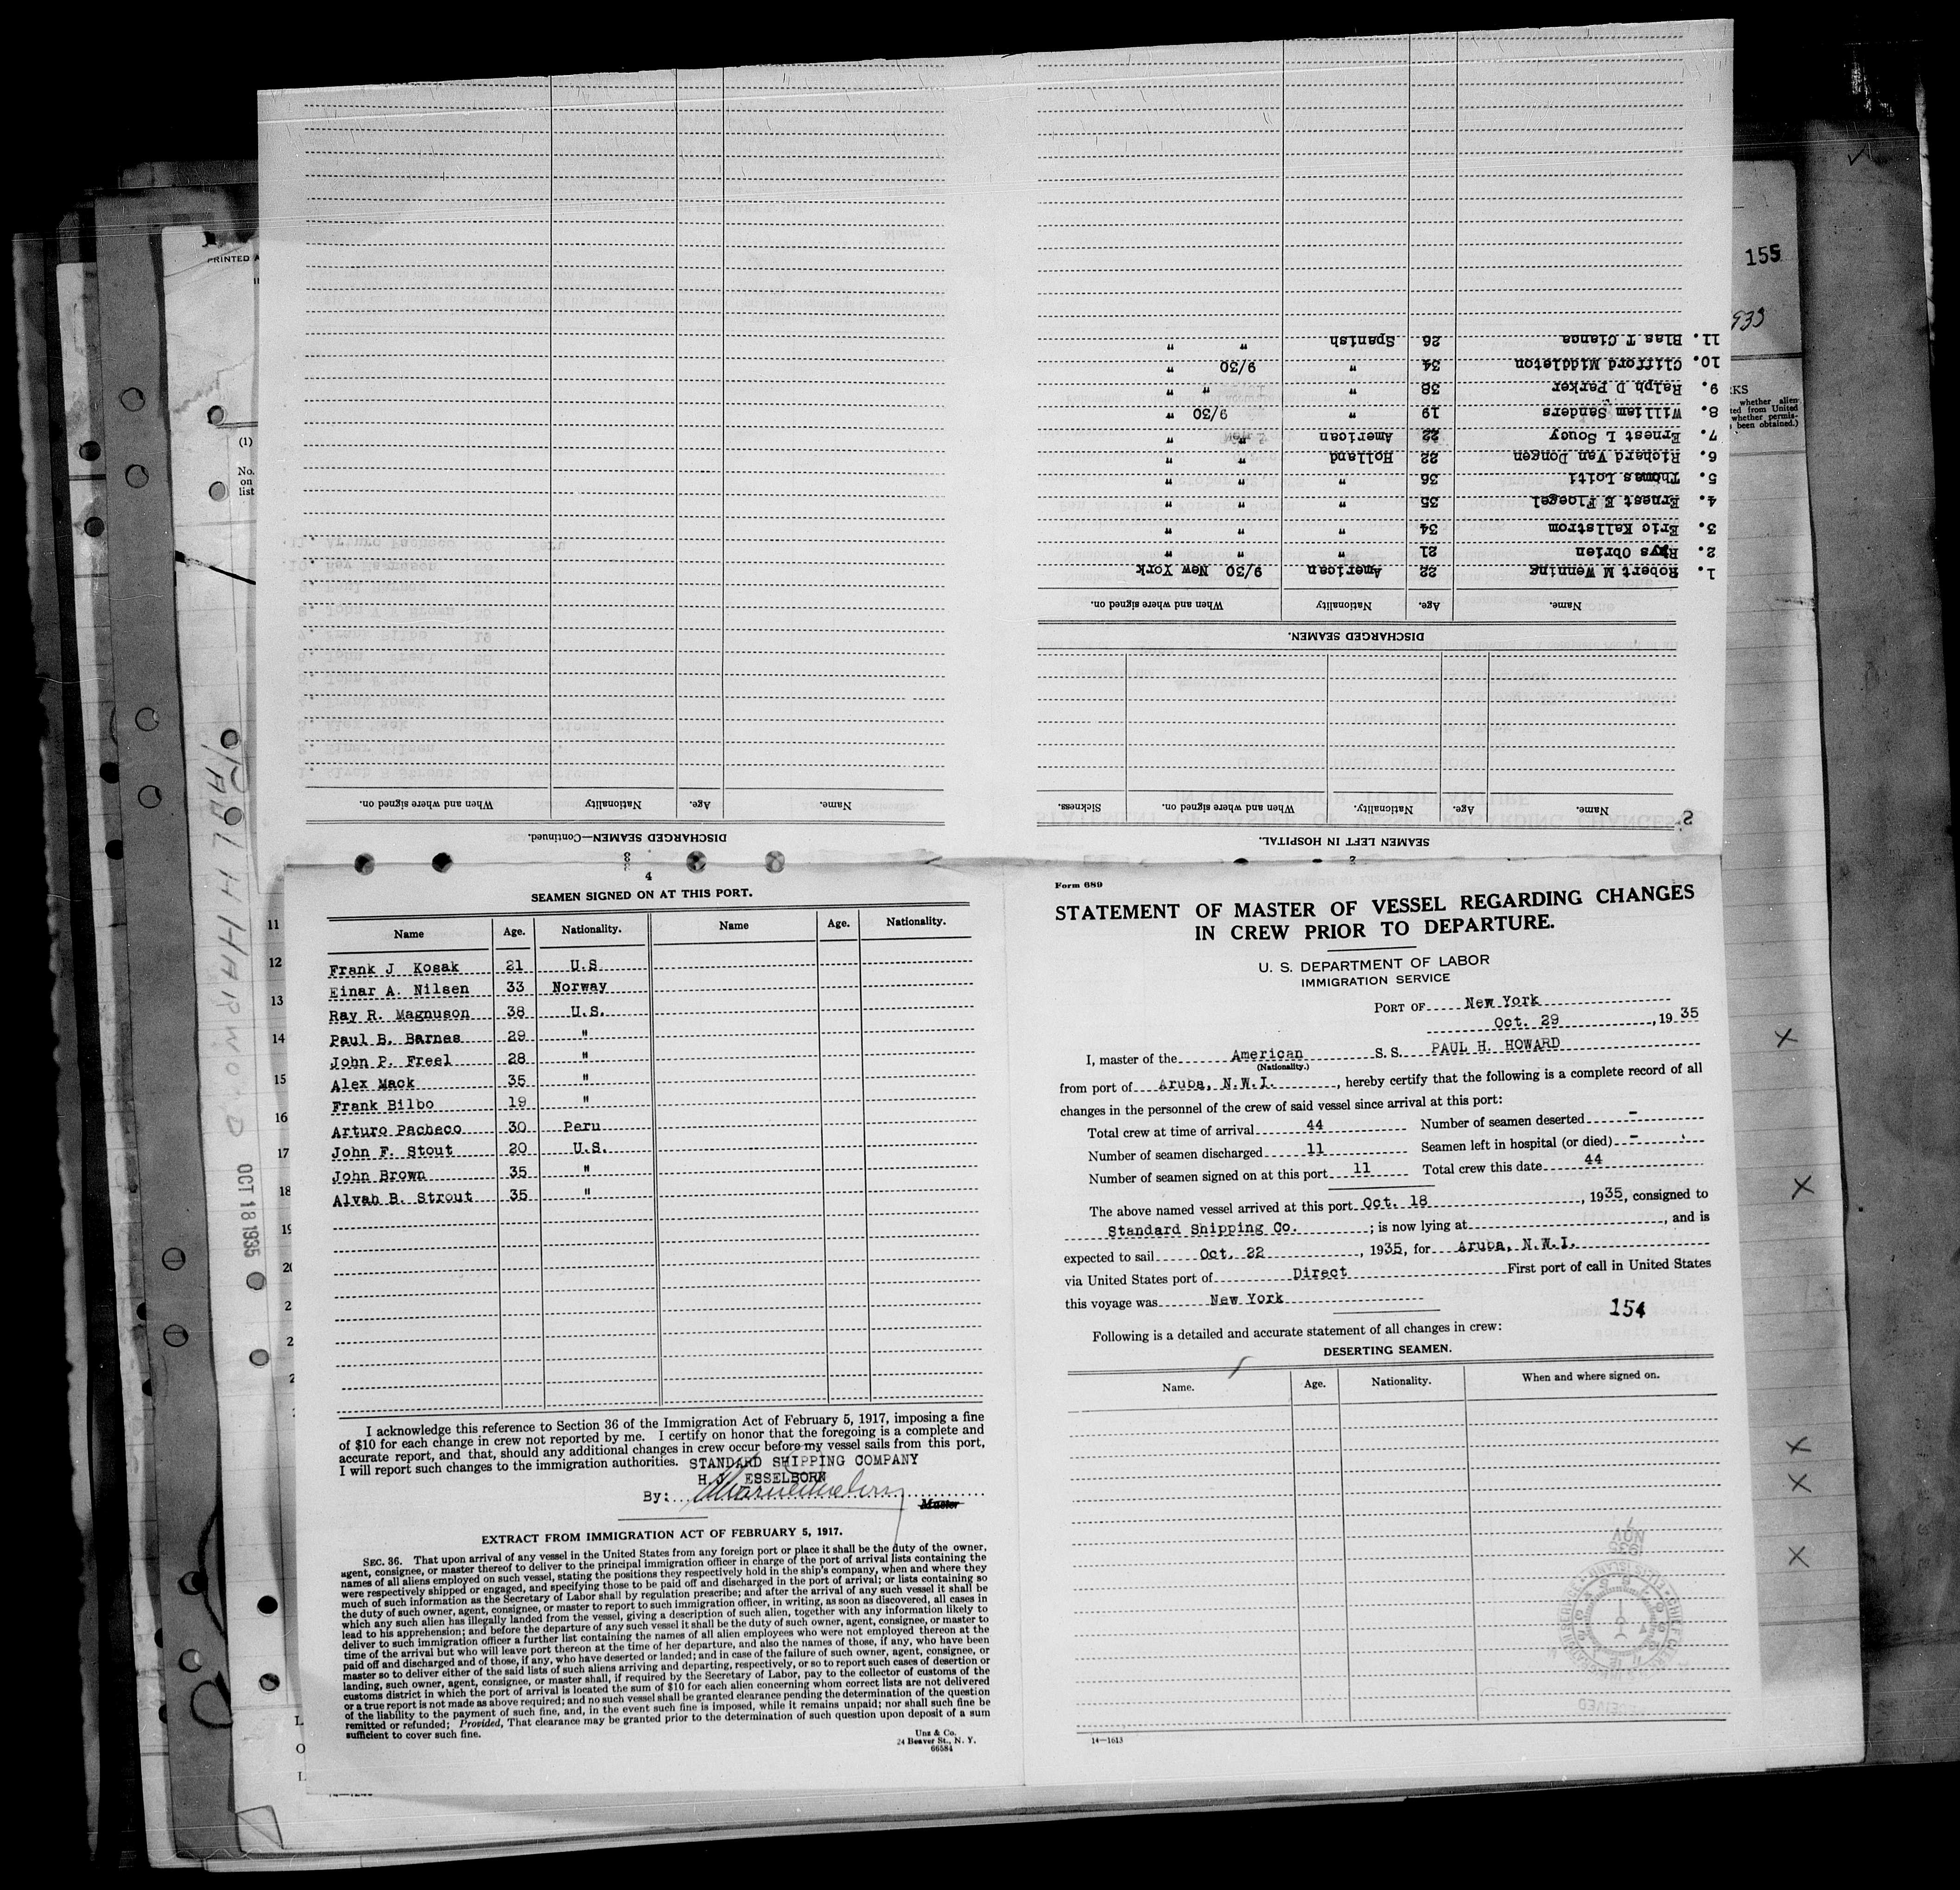 Form 689
STATEMENT OF MASTER OF VESSEL REGARDING CHANGES
IN CREW PRIOR TO DEPARTURE.
U. S. DEPARTMENT OF LABOR
IMMIGRATION SERVICE
PORT OF New York
Oct. 29, 1935
I, master of the American S. S. PAUL H. HOWARD
(Nationality.)
from port of Aruba, N.W.I., hereby certify that the following is a complete record of all
changes in the personnel of the crew of said vessel since arrival at this port:
Total crew at time of arrival 44 Number of seamen deserted -
Number of seamen discharged 11 Seamen left in hospital (or died) -
Number of seamen signed on at this port 11 Total crew this date 44
The above named vessel arrived at this port Oct. 18, 1935, consigned to
Standard Shipping Co.; is now lying at , and is
expected to sail Oct. 22, 1935, for Aruba, N.W.I.
via United States port of Direct First port of call in United States
this voyage was New York
154
Following is a detailed and accurate statement of all changes in crew:
DESERTING SEAMEN.
Name. Age. Nationality. When and where signed on.
14—1613
2
SEAMEN LEFT IN HOSPITAL.
Name. Age. Nationality. When and where signed on. Sickness.
DISCHARGED SEAMEN.
Name. Age. Nationality When and where signed on.
1. Robert M Wenning 22 American 9/30 New York
2. Rhys Obrien 21 " " "
3. Eric Kallstrom 34 " " "
4. Ernest E Floegel 35 " " "
5. Thomas Loiti 36 " " "
6. Richard Van Dongen 22 Holland " "
7. Ernest L Soucy 22 American " "
8. William Sanders 19 " 9/30 "
9. Ralph D Parker 38 " " "
10. Clifford Middleton 34 " 9/30 "
11. Blas T Cianca 26 Spanish " "
3
DISCHARGED SEAMEN—Continued.
Name. Age. Nationality When and where signed on.
4
SEAMEN SIGNED ON AT THIS PORT.
Name Age. Nationality. Name Age. Nationality.
Frank J Kosak 21 U.S
Einar A. Nilsen 33 Norway
Ray R. Magnuson 38 U.S.
Paul B. Barnes 29 "
John P. Freel 28 "
Alex Mack 35 "
Frank Bilbo 19 "
Arturo Pacheco 30 Peru
John F. Stout 20 U.S.
John Brown 35 "
Alvah B. Strout 35 "
I acknowledge this reference to Section 36 of the Immigration Act of February 5, 1917, imposing a fine
of $10 for each change in crew not reported by me. I certify on honor that the foregoing is a complete and
accurate report, and that, should any additional changes in crew occur before my vessel sails from this port,
I will report such changes to the immigration authorities. STANDARD SHIPPING COMPANY
H.J. ESSELBORN
By:
Master
EXTRACT FROM IMMIGRATION ACT OF FEBRUARY 5, 1917.
SEC. 36. That upon arrival of any vessel in the United States from any foreign port or place it shall be the duty of the owner,
agent, consignee, or master thereof to deliver to the principal immigration officer in charge of the port of arrival lists containing the
names of all aliens employed on such vessel, stating the positions they respectively hold in the ship's company, when and where they
were respectively shipped or engaged, and specifying those to be paid off and discharged in the port of arrival; or lists containing so
much of such information as the Secretary of Labor shall by regulation prescribe; and after the arrival of any such vessel it shall be
the duty of such owner, agent, consignee, or master to report to such immigration officer, in writing, as soon as discovered, all cases in
which any such alien has illegally landed from the vessel, giving a description of such alien, together with any information likely to
lead to his apprehension; and before the departure of any such vessel it shall be the duty of such owner, agent, consignee, or master to
deliver to such immigration officer a further list containing the names of all alien employees who were not employed thereon at the
time of the arrival but who will leave port thereon at the time of her departure, and also the names of those, if any, who have been
paid off and discharged and of those, if any, who have deserted or landed; and in case of the failure of such owner, agent, consignee, or
master so to deliver either of the said lists of such aliens arriving and departing, respectively, or so to report such cases of desertion or
landing, such owner, agent, consignee, or master shall, if required by the Secretary of Labor, pay to the collector of customs of the
customs district in which the port of arrival is located the sum of $10 for each alien concerning whom correct lists are not delivered
or a true report is not made as above required; and no such vessel shall be granted clearance pending the determination of the question
of the liability to the payment of such fine, and, in the event such fine is imposed, while it remains unpaid; nor shall such fine be
remitted or refunded; Provided, That clearance may be granted prior to the determination of such question upon deposit of a sum
sufficient to cover such fine.
Unz & Co.
24 Beaver St., N. Y.
66584
PRINTED
(1)
No.
on
list
11
12
13
14
15
16
17
18
19
OCT 18 1935
155
whether alien
from United
whether permis-
been obtained.)